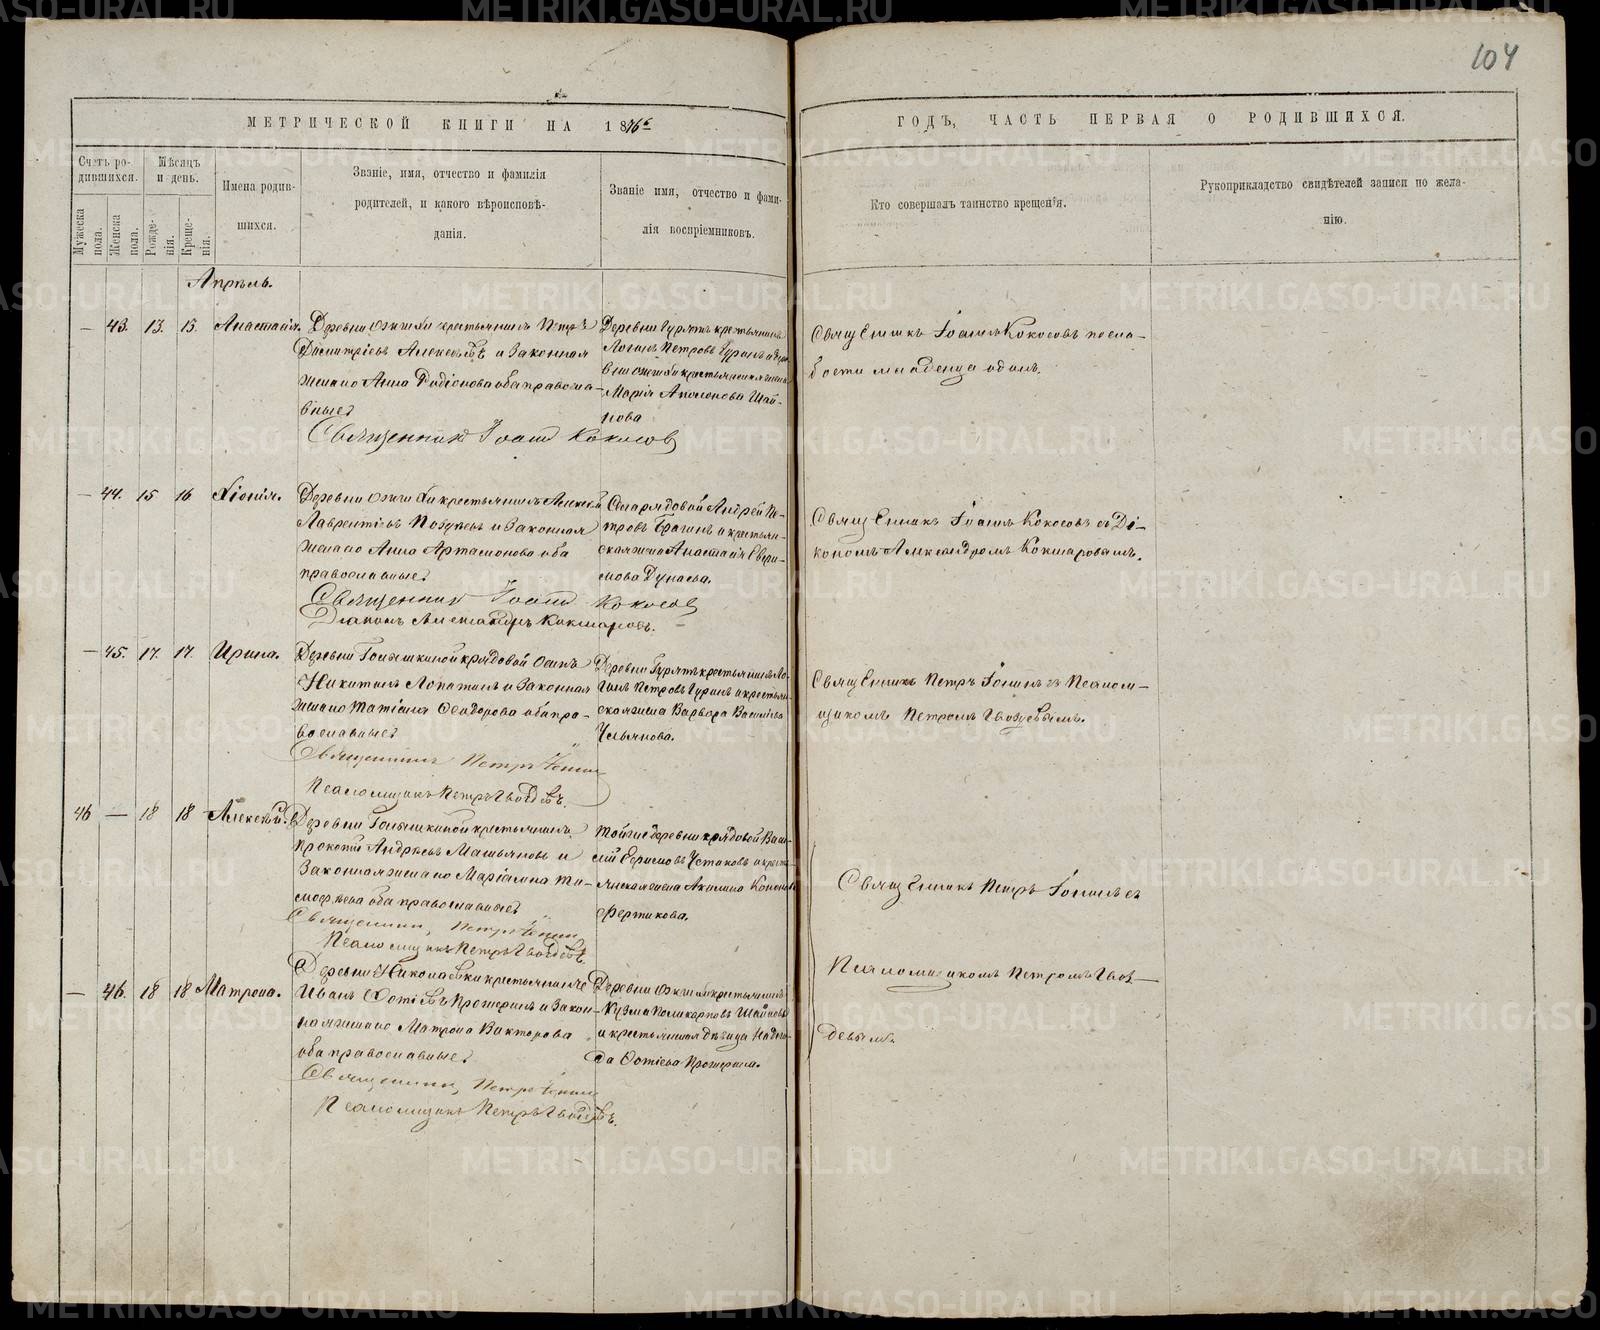 104
МЕТРИЧЕСКОЙ КНИГИ НА 1876й
ГОДЪ, ЧАСТЬ ПЕРВАЯ О РОДИВШИХСЯ.
Счетъ ро-
дившихся.
Мужеска
пола.
Женска
пола.
Мѣсяцъ
и день.
Рожде-
нія.
Креще-
нія.
Имена родив-
шихся.
Званіе, имя, отчество и фамилія
родителей, и какого вѣроисповѣ-
данія.
Званіе имя, отчество и фами-
лія воспріемниковъ.
Кто совершалъ таинство крещенія.
Рукоприкладство свидѣтелей записи по жела-
нію.
Апрѣль.
— 43. 13. 15. Анастасія.
Деревни крестьянинъ Петръ
Димитріевъ Алексѣевъ и законная
жена его Анна Родіонова оба правосла-
вные
Священникъ Іоаннъ Кокосов
Деревни Гурятъ крестьянинъ
Логинъ Петровъ Гуринъ и дере-
вни крестьянская жена
Марія Аполонова Шай-
нова
Священникъ Іоаннъ Кокосовъ по сла-
бости младенца одинъ.
— 44. 15 16 Хіонія.
Деревни крестьянинъ Алексѣй
Лаврентіевъ и законная
жена его Анна Артамонова оба
православные
Священник Іоанн Кокосов
Діаконъ Александръ Кокшаровъ.
рядовой Андрей Пе-
тровъ Брагинъ и крестьян-
ская жена Анастасія
Дунаева.
Священникъ Іоаннъ Кокосовъ съ Ді-
кономъ Александромъ Кокшаровымъ.
— 45. 17. 17. Ирина.
Деревни Голяшкиной рядовой Осипъ
Никитинъ Лопатинъ и законная
жена его Татіана Ѳеодорова оба пра-
вославные
Священникъ Петръ Іонинъ
Псаломщикъ Петръ Гвоздевъ.
Деревни Гурятъ крестьянинъ Ло-
гинъ Петровъ Гуринъ и крестьян-
ская жена Варвара Васильева
Ульянова.
Священникъ Петръ Іонинъ съ Псалом-
щикомъ Петромъ Гвоздевымъ.
46 — 18 18 Алексѣй.
Деревни Голяшкиной крестьянинъ
Прокопій Андреевъ и
законная жена его Маріамна Ти-
мофѣева оба православные
Священникъ Петръ Іонинъ
Псаломщикъ Петръ Гвоздевъ.
Той же деревни рядовой Васи-
лій Устиновъ и кресть-
янская жена Акилина
Фертикова.
Священникъ Петръ Іонинъ съ
Псаломщикомъ Петромъ Гвоз-
девымъ.
— 46. 18 18 Матрона.
Деревни Николаевки крестьянинъ
Иванъ Фотіевъ и закон-
ная жена его Матрона Викторова
оба православные
Священникъ Петръ Іонинъ
Псаломщикъ Петръ Гвоздевъ.
Деревни крестьянинъ
Кузма Поликарповъ Шайновъ
и крестьянская дѣвица Надеж-
да Фотіева